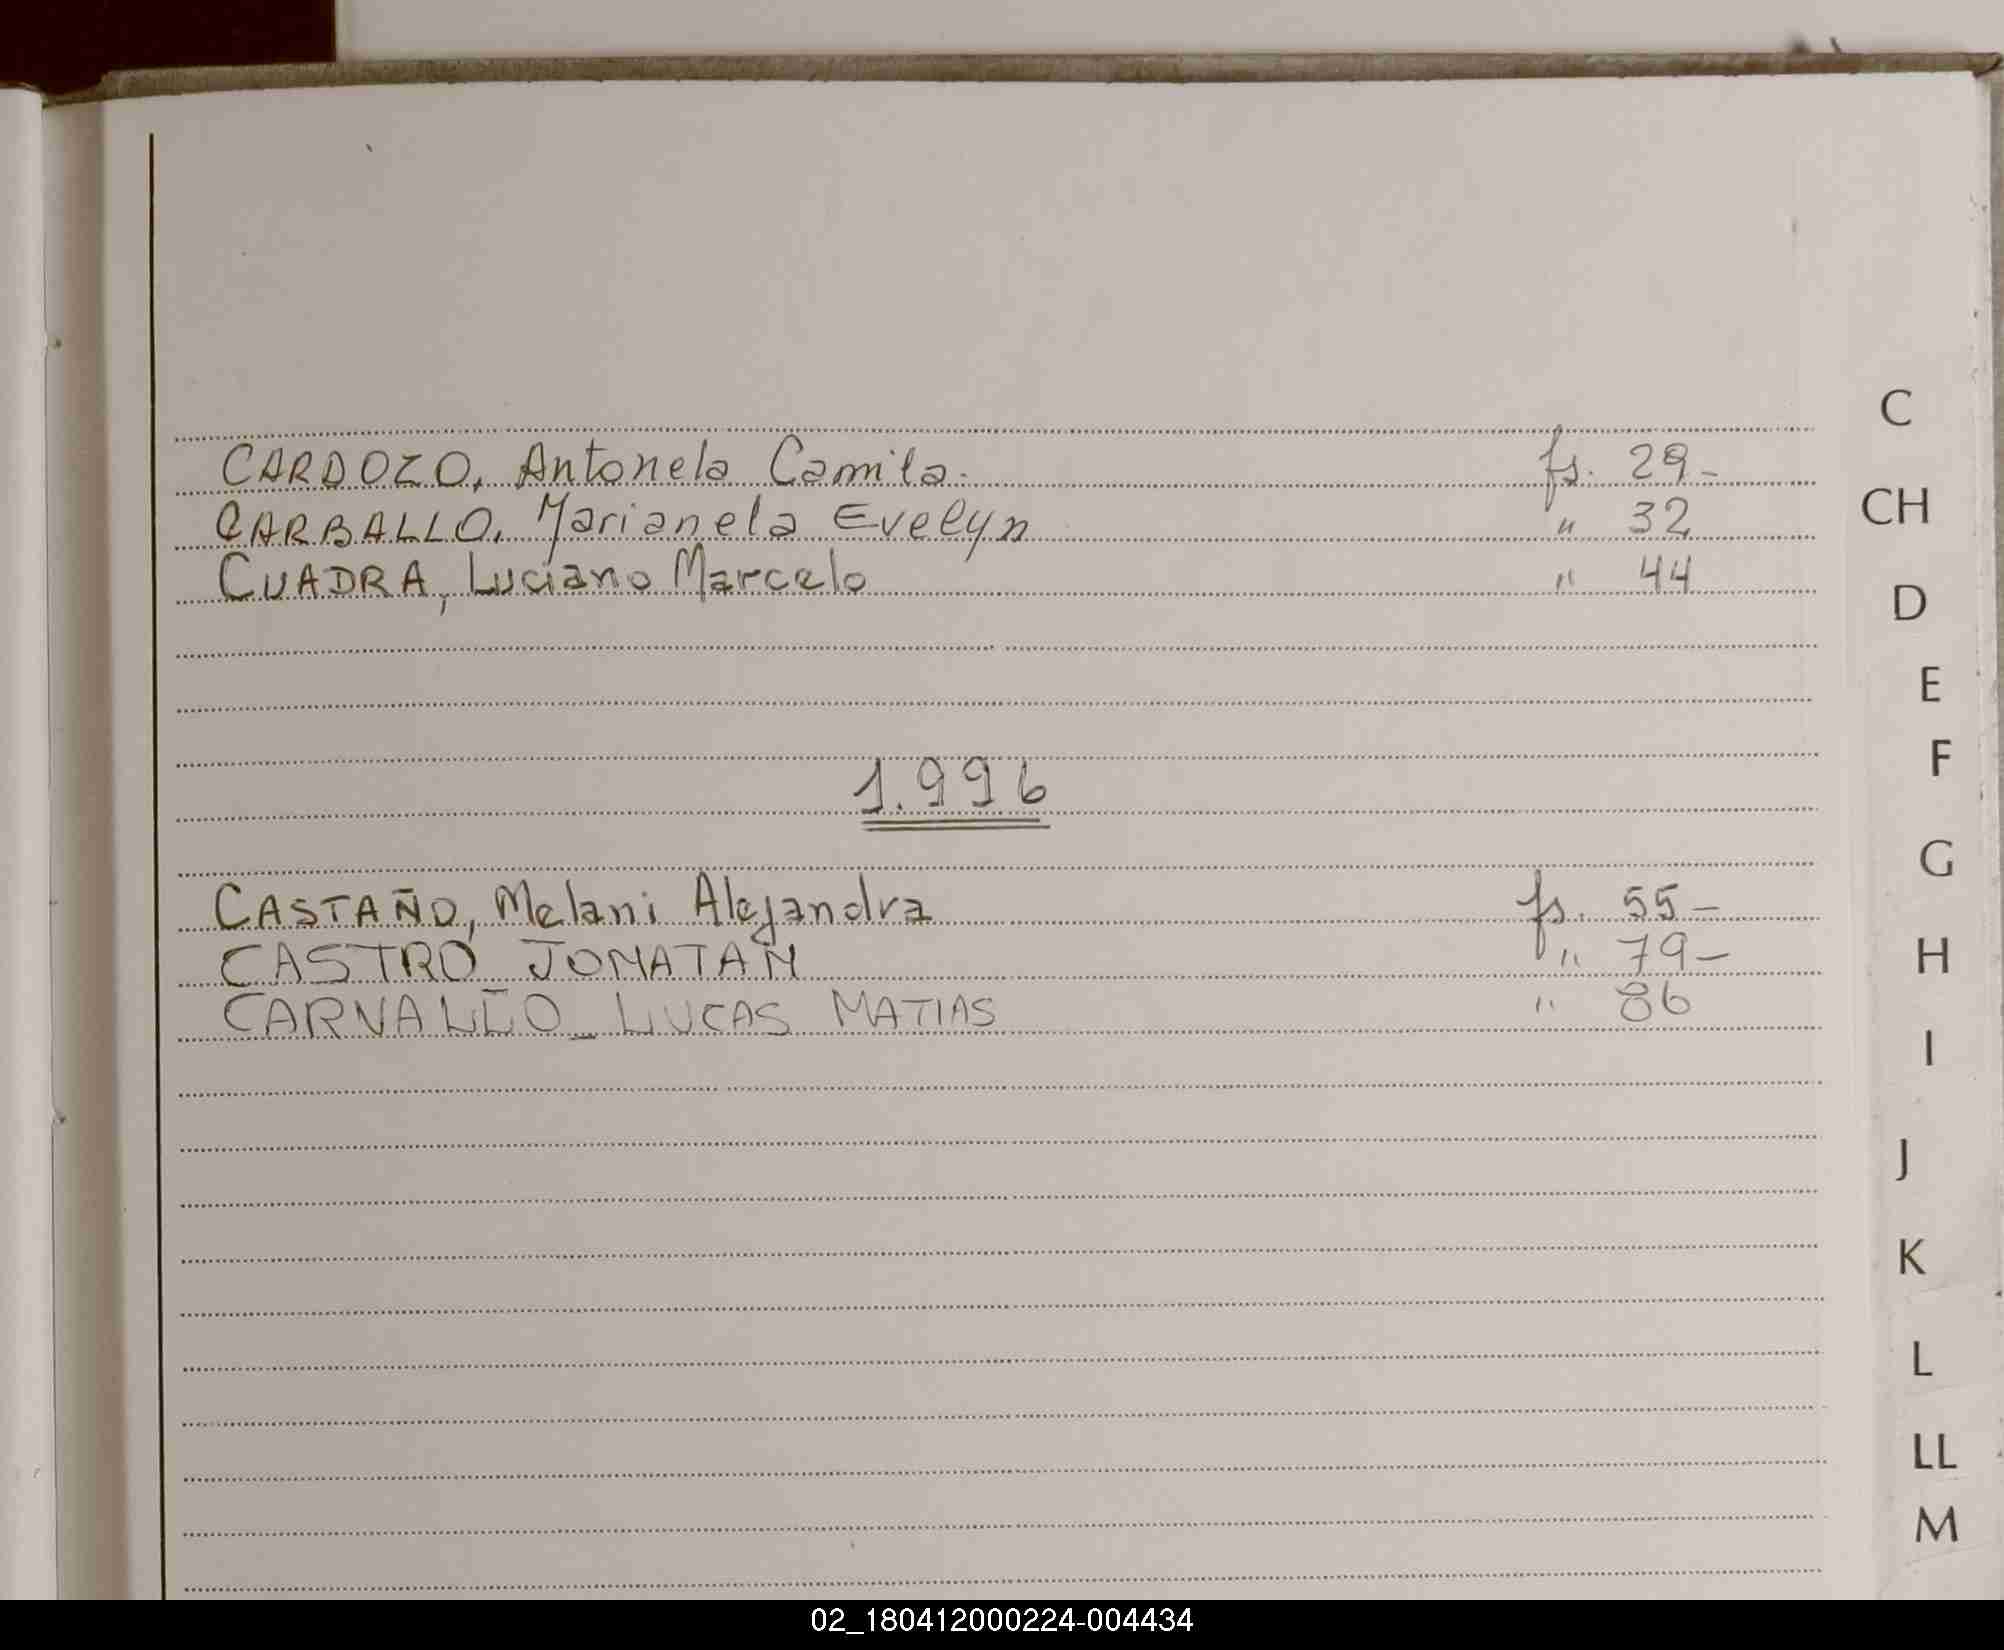 CARDOZO, Antonela Camila. fs. 29-
CARBALLO, Marianela Evelyn " 32
CUADRA, Luciano Marcelo " 44
1.996
CASTAÑO, Melani Alejandra fs. 55-
CASTRO JONATAN " 79-
CARVALLO_LUCAS MATIAS " 86
C
CH
D
E
F
G
H
I
J
K
L
LL
M
02_180412000224-004434